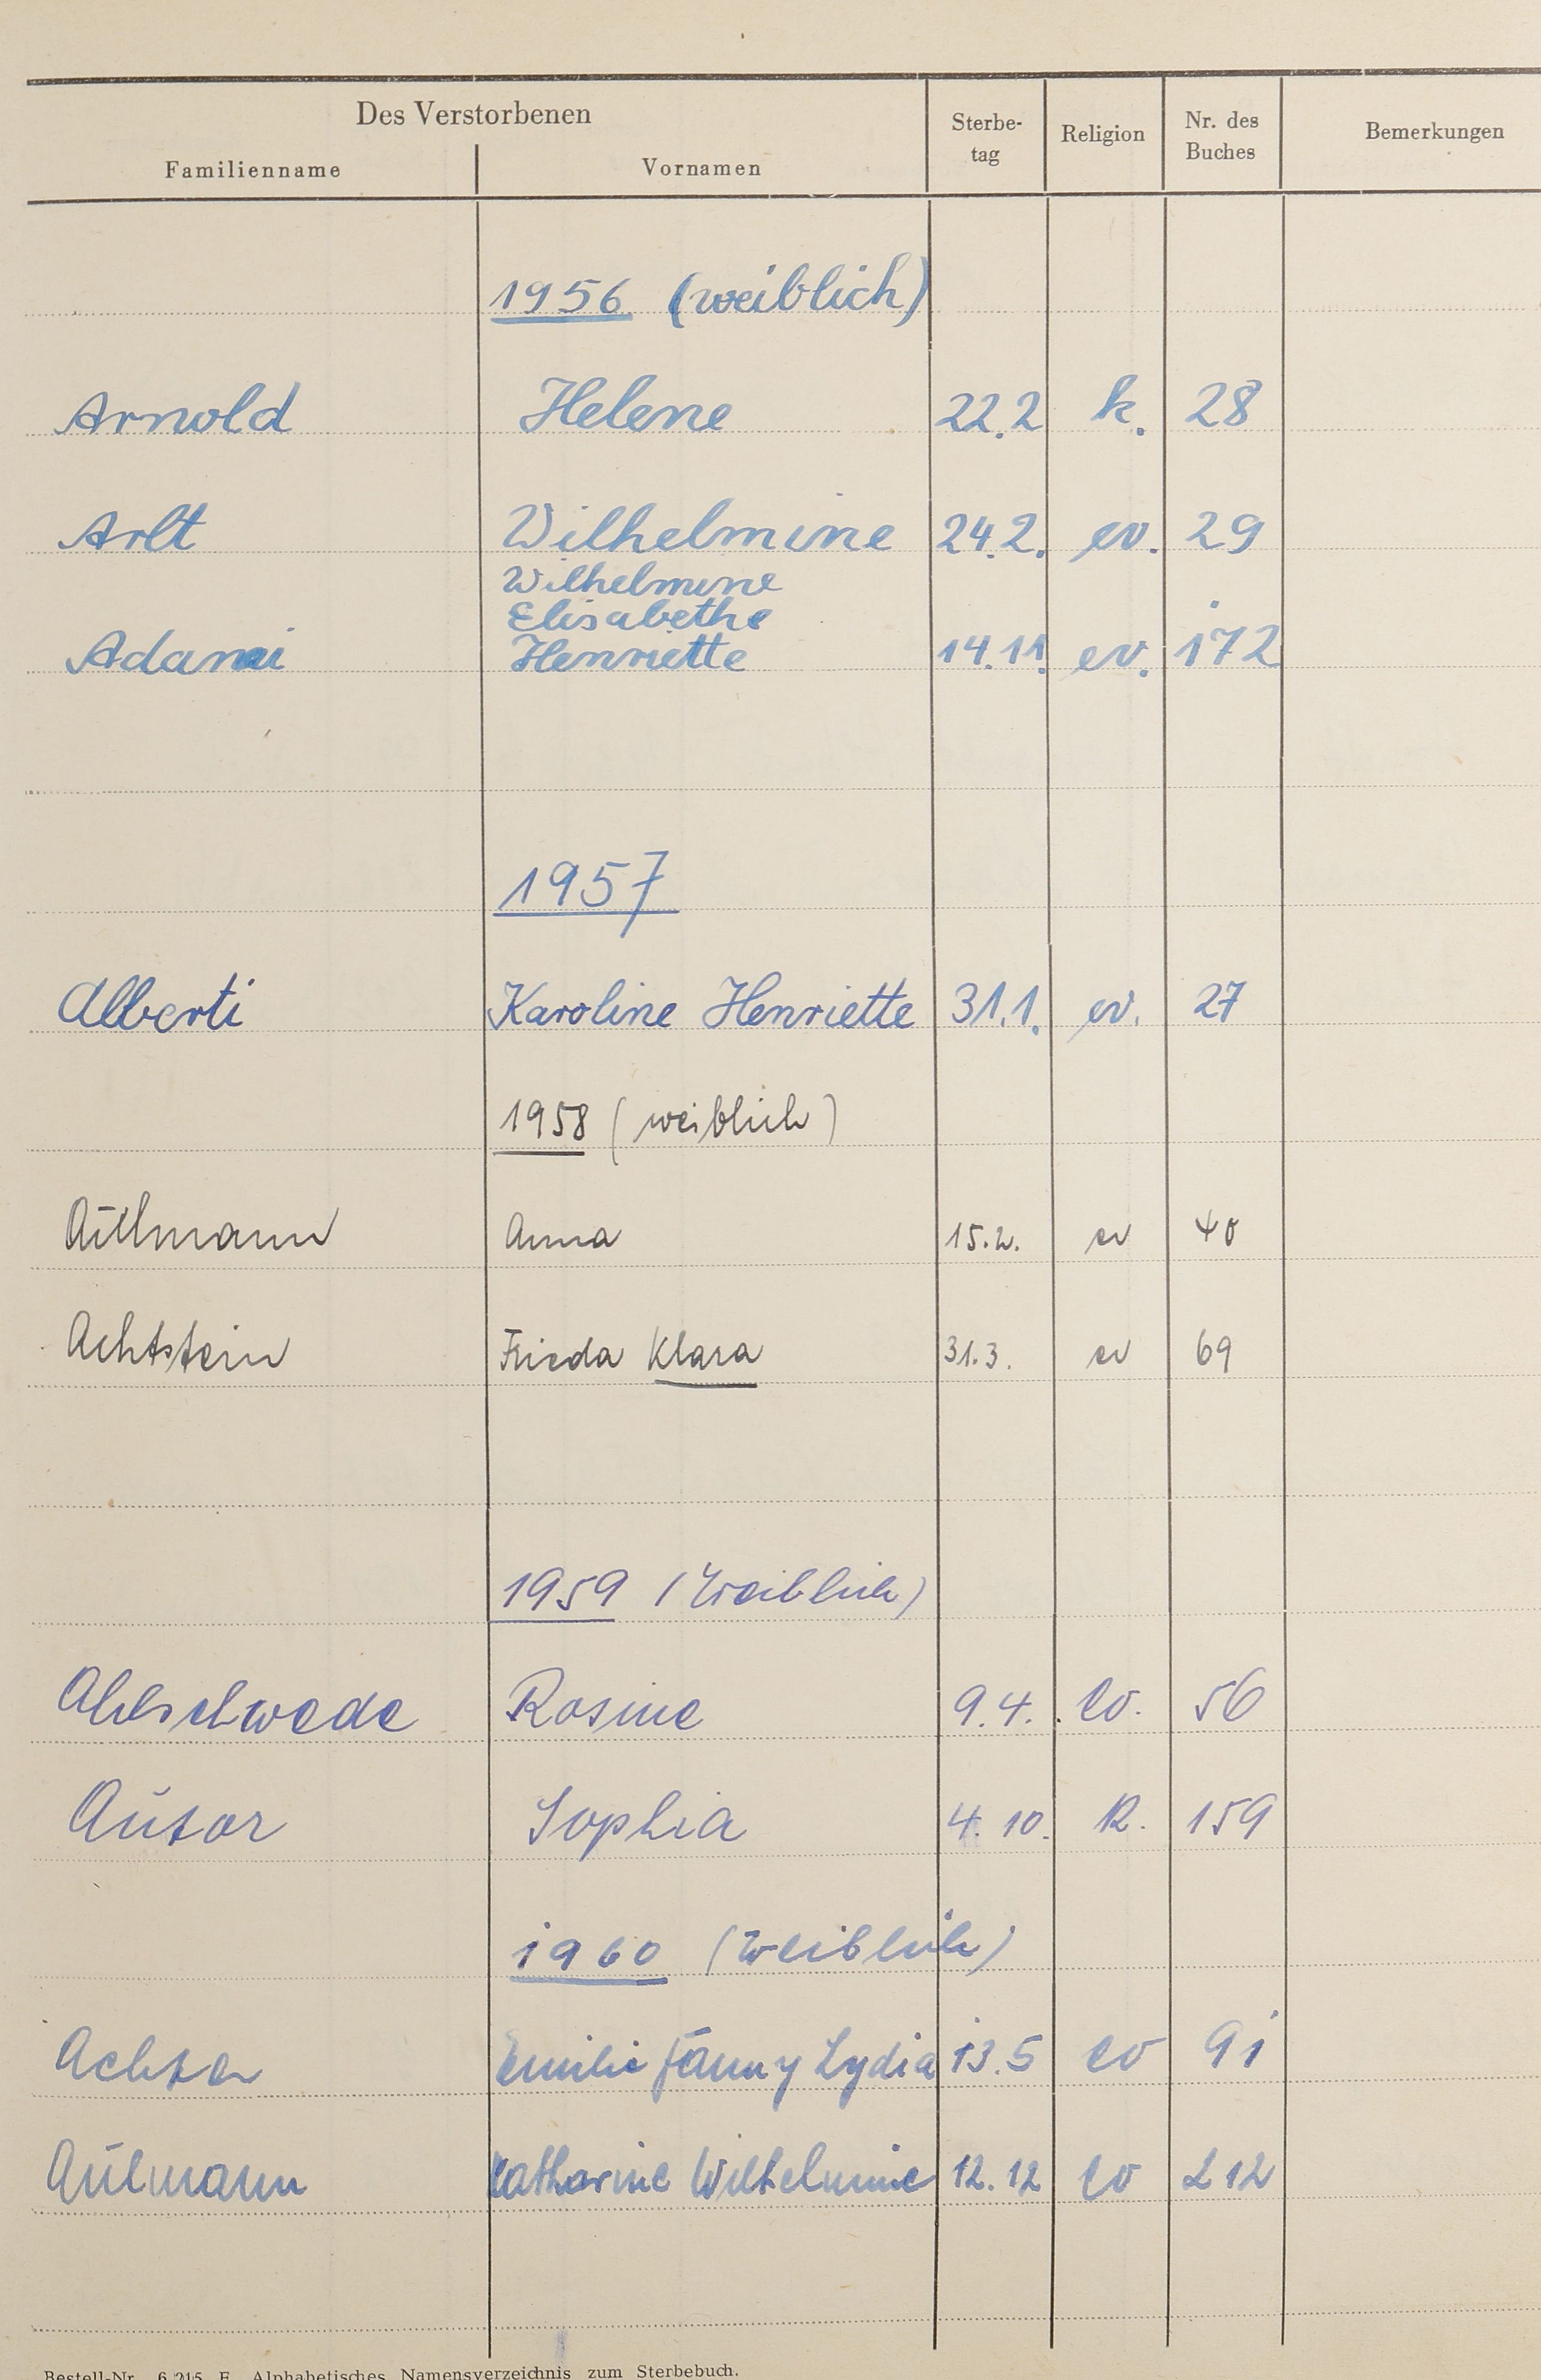 Des Verstorbenen
Familienname Vornamen Sterbe-tag Religion Nr. des Buches Bemerkungen
1956 (weiblich)
Arnold Helene 22.2 k. 28
Arlt Wilhelmine 24.2. ev. 29
Wilhelmine
Elisabethe
Adami Henriette 14.11. ev. 172
1957
Alberti Karoline Henriette 31.1. ev. 27
1958 (weiblich)
Anna 15.2. ev 40
Achtstein Frieda Klara 31.3. ev 69
1959 (Weiblich)
Ahlschwede Rosine 9.4. ev. 56
Autor Sophia 4.10. R. 159
1960 (Weiblich)
Achter Emilie Fanny Lydia 13.5 ev 91
Aulmann Katharine Wilhelmine 12.12 ev 212
Bestell-Nr. 6/215 F. Alphabetisches Namensverzeichnis zum Sterbebuch.